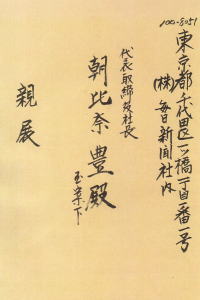 100-8051
東京都千代田区一ツ橋一丁目一番一号
(株)毎日新聞社内
代表取締役社長
朝比奈豊殿
玉案下
親展